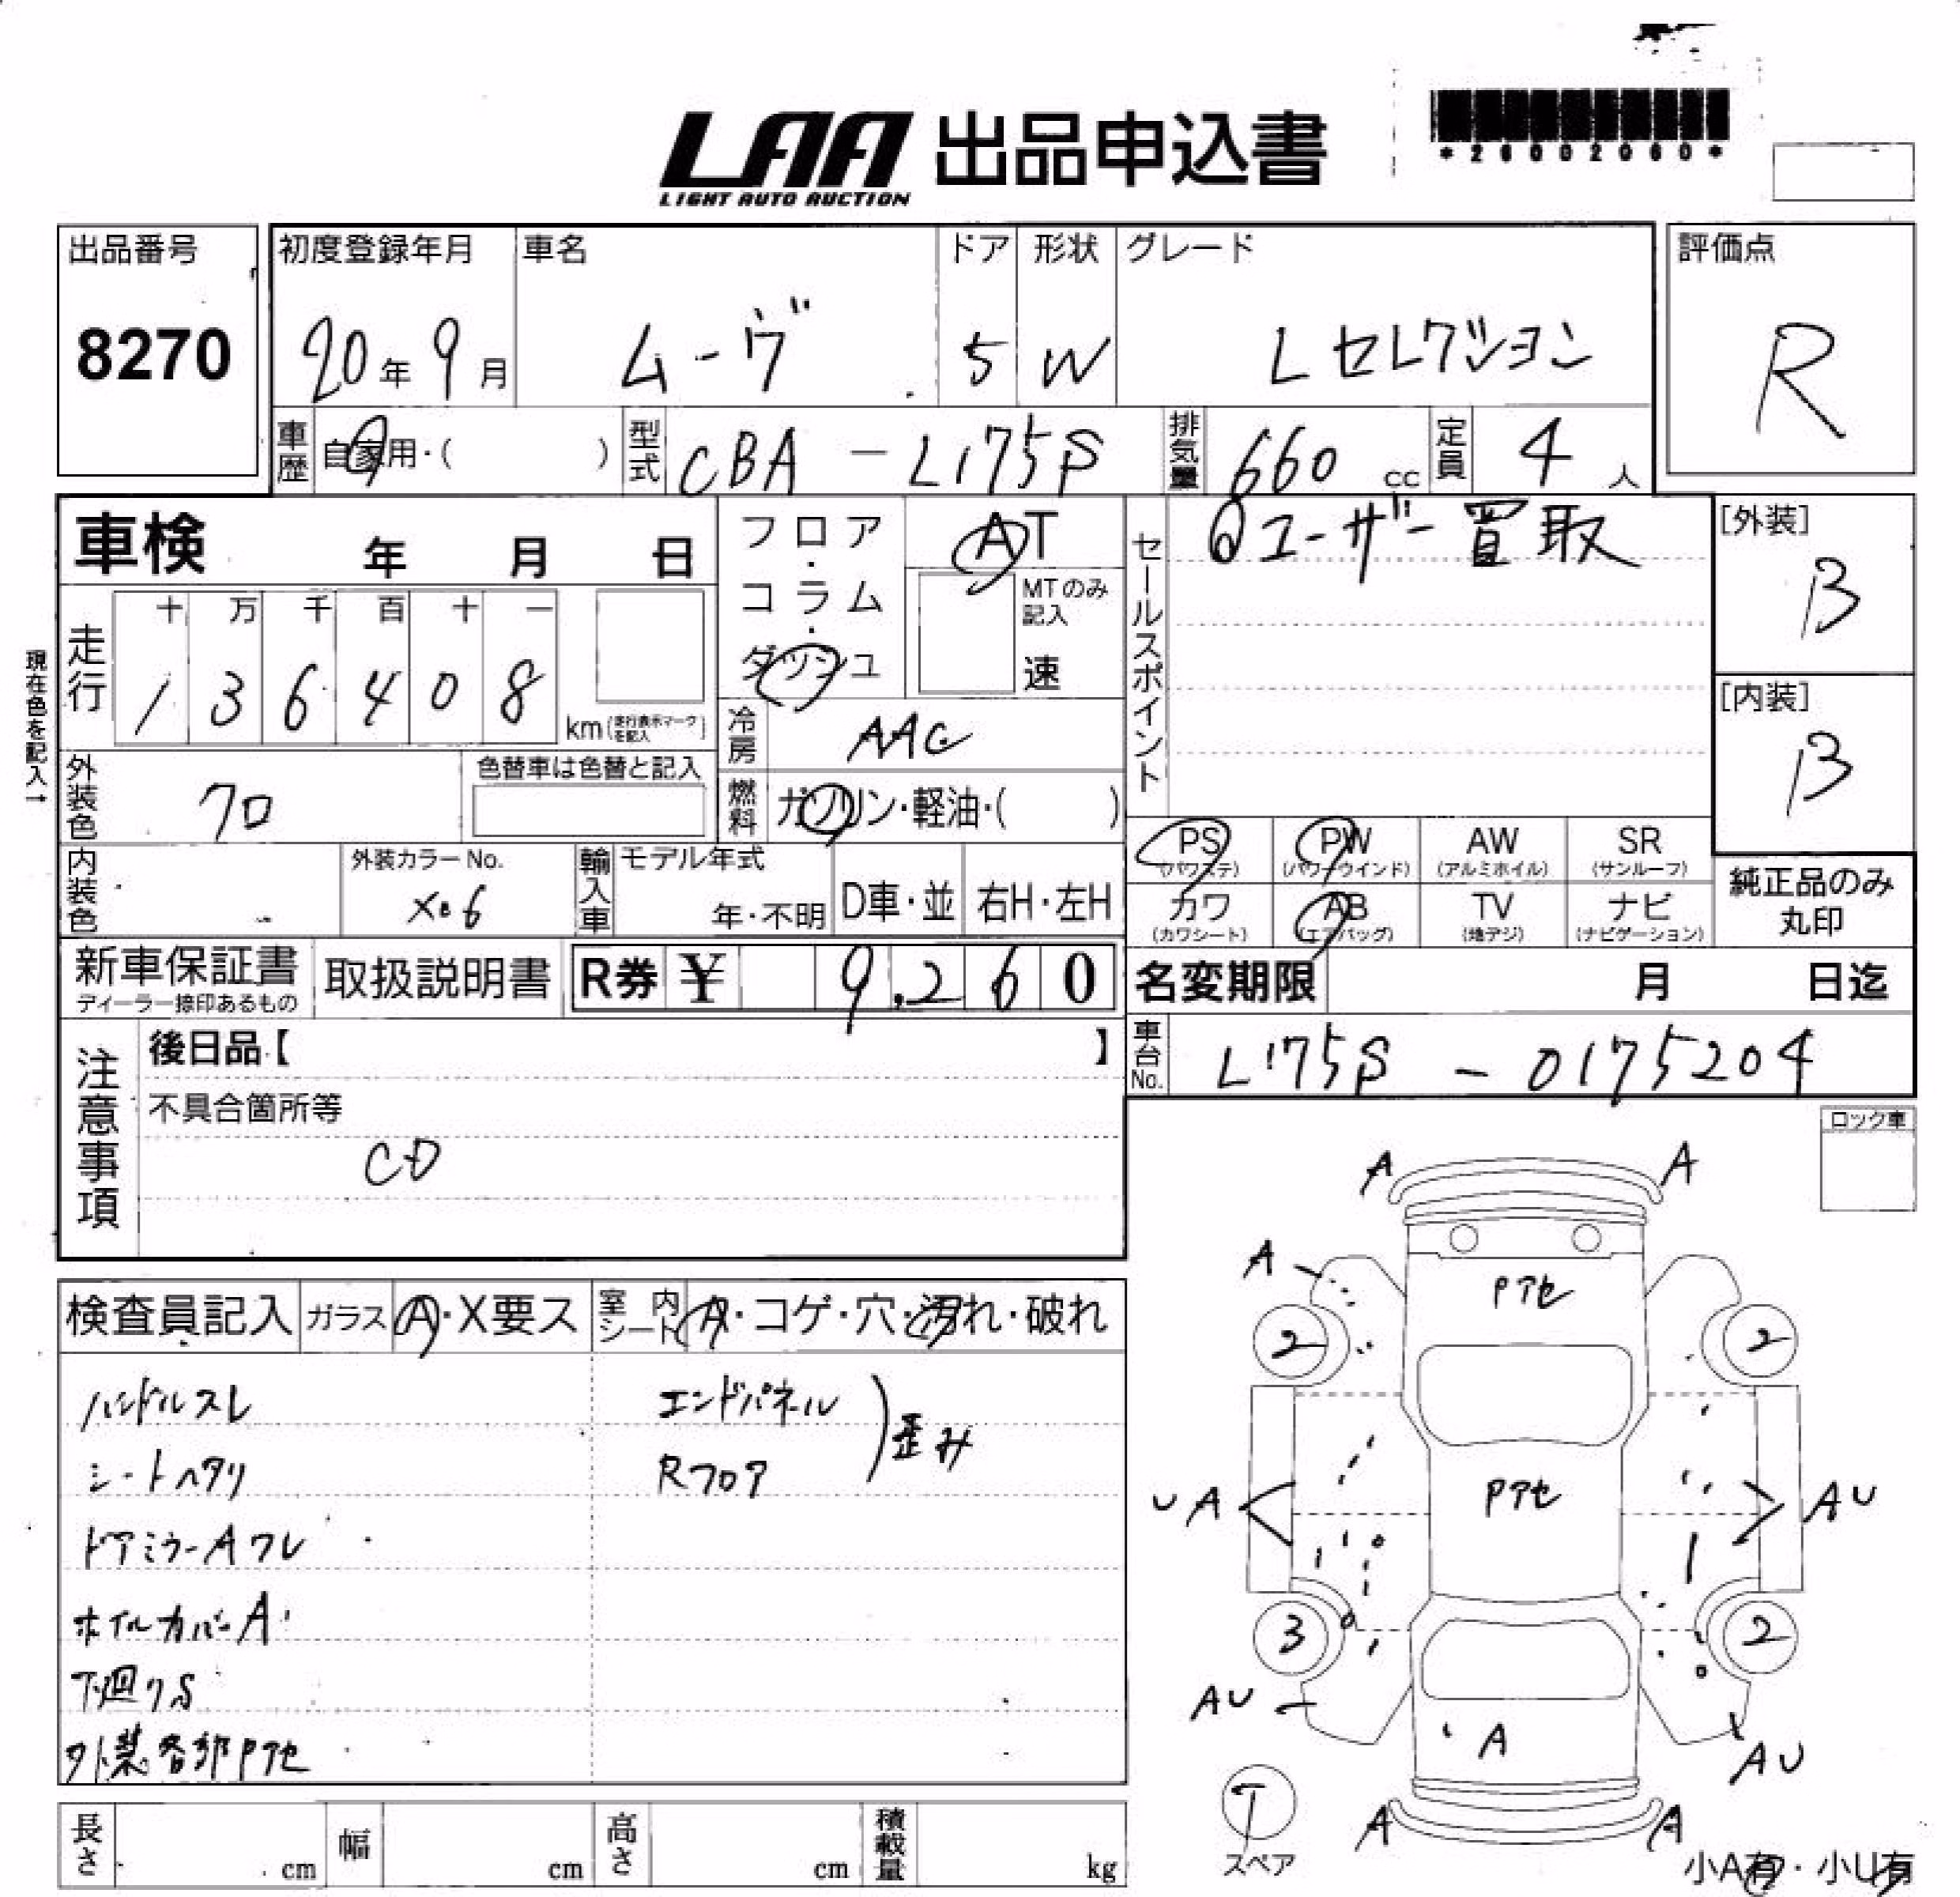 LAA 出品申込書
LIGHT AUTO AUCTION
*26002060*
出品番号
8270
初度登録年月
20年9月
車名
ムーヴ
ドア
5
形状
W
グレード
Lセレクション
評価点
R
車歴
自家用・( )
型式
CBA-L175S
排気量
660cc
定員
4人
車検 年 月 日
フロア・コラム・ダッシュ
AT
MTのみ記入
速
セールスポイント
ユーザー買取
[外装]
B
[内装]
B
現在色を記入→
走行
十 万 千 百 十 一
1 3 6 4 0 8
km(走行表示マークを記入)
冷房
AAC
外装色
クロ
色替車は色替と記入
燃料
ガソリン・軽油・( )
内装色
外装カラーNo.
X06
輸入車
モデル年式
年・不明
D車・並
右H・左H
PS
(パワステ)
PW
(パワーウインド)
AW
(アルミホイル)
SR
(サンルーフ)
カワ
(カワシート)
AB
(エアバッグ)
TV
(地デジ)
ナビ
(ナビゲーション)
純正品のみ
丸印
新車保証書
ディーラー捺印あるもの
取扱説明書
R券 ¥ 9,260
名変期限 月 日迄
車台No.
L175S-0175204
注意事項
後日品【 】
不具合箇所等
CD
ロック車
検査員記入
ガラス
A・X要ス
室内シート
A・コゲ・穴・汚れ・破れ
ハンドルスレ
シートヘタリ
ドアミラーAワレ
ホイルカバーA
下廻りS
外装各部Pアセ
エンドパネル
Rフロア
歪み
A A
A
Pアセ
2 2
Pアセ
UA AU
3 2
AU
A
AU
T
スペア
A A
小A有・小U有
長さ cm
幅 cm
高さ cm
積載量 kg